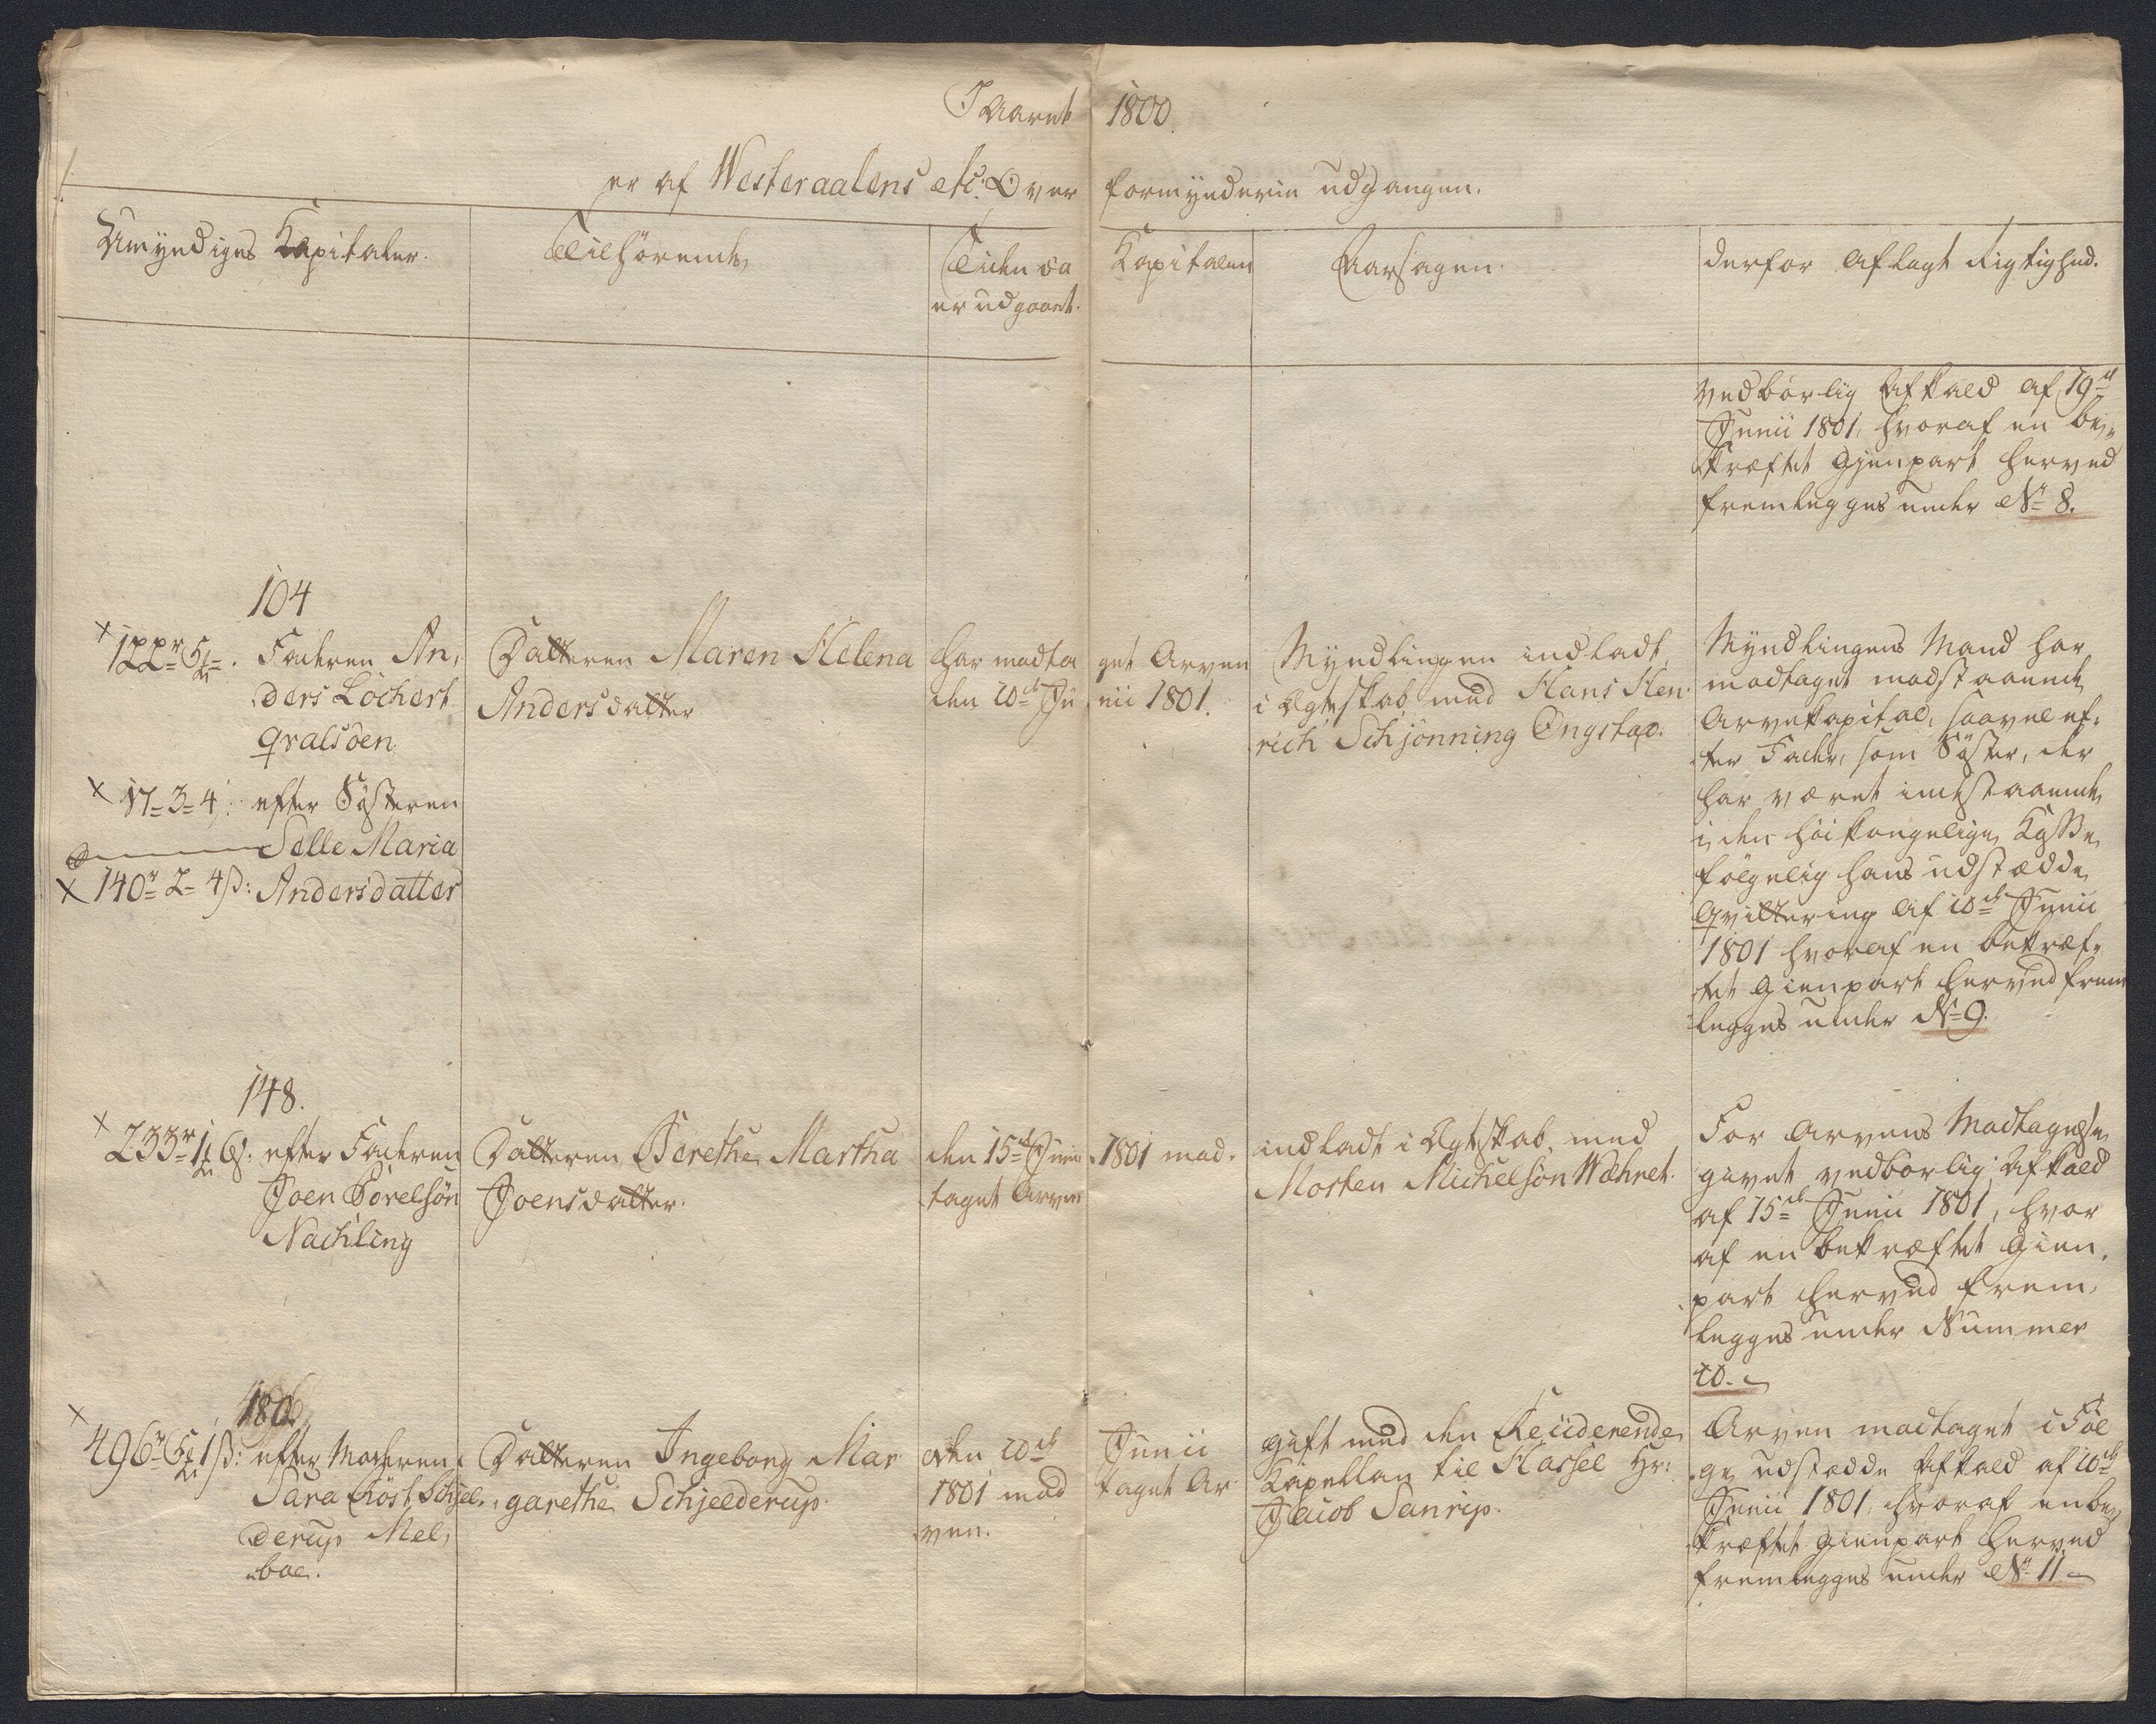 I Aaret 1800.
er af Westeraalens etc: Over formynderie udgangen.
Umyndiges Kapitaler.
Tilhørende
Tiden da Kapitalen
er udgaaet.
Aarsagen.
derfor aflagt Rigtighed.
vedbørlig Afkald af 19de
Junii 1801, hvoraf en be-
kræftet Gjenpart herved
fremlegges under No 8.
104
122r 5 Faderen An-
ders Löchert
Qvalsöen
17-3-4 efter Søsteren
Selle Maria
140r 2-4ß: Andersdatter
Datteren Maren Helena
Andersdatter
har modta get Arven
den 10de Ju nii 1801.
Myndlingen indladt
i Ægteskab med Hans Hen-
rich Schjönning Engstad.
Myndlingens Mand har
modtaget modstaaende
Arvekapital, saavel ef-
ter Fader, som Søster, der
har været indestaaende
i den høikongelige Kasse,
følgelig hans udstædde
Qvittering af 10de Junii
1801 hvoraf en bekræf-
tet Gienpart herved frem
legges under No 9.
148.
233r 1 6ß: efter Faderen
Joen Torelsøn
Nachling
Datteren Berethe Martha
Joensdatter.
den 15de Junii 1801 mod-
taget Arven
indladt i Ægteskab med
Morten Michelsön Wæhnet.
For Arvens Modtagelse
givet vedbørlig Afkald
af 15de Junii 1801, hvor
af en bekræftet Gien-
part herved frem-
legges under Nummer
10.
180.
496r 5 1ß: efter Moderen
Sara Röst Schjel-
derup Mel-
boe.
Datteren Ingeborg Mar
garethe Schjelderup.
den 10de Junii
1801 mod taget Ar-
ven.
gift med den Residerende
Kapellan til Hassel Hr:
Jacob Sanrip.
Arven modtaget i Føl
ge udstædde Afkald af 10de
Junii 1801, hvoraf en be-
kræftet Gienpart herved
fremlegges under No 11